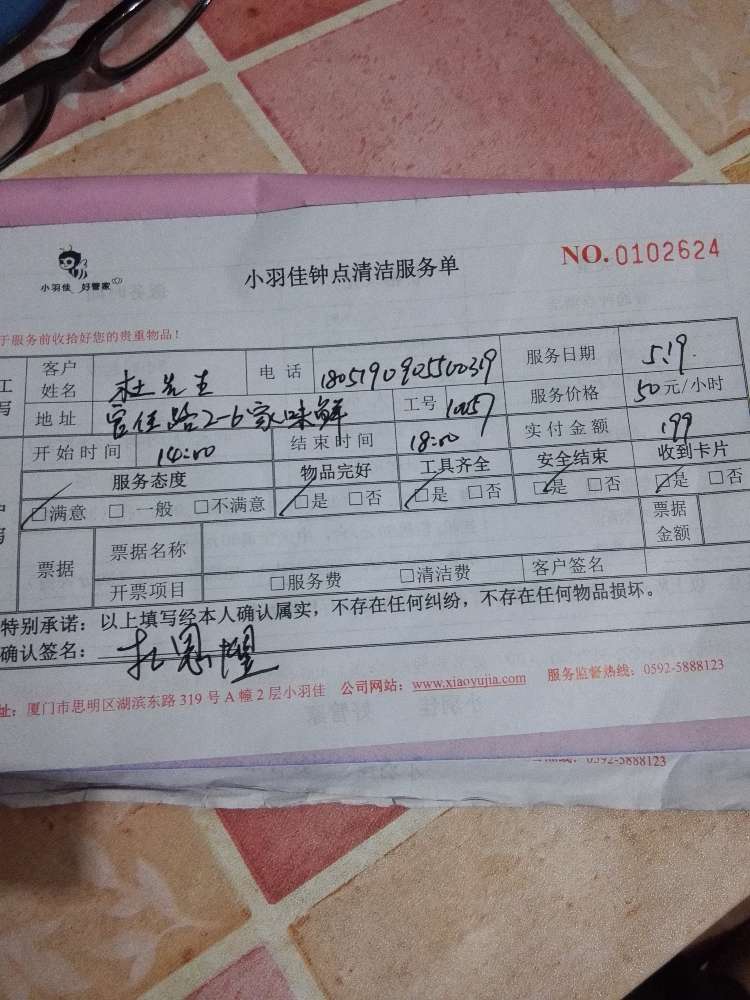 小羽佳 好管家
小羽佳钟点清洁服务单
NO. 0102624
于服务前收拾好您的贵重物品！
客户姓名 杜先生 电话 18051909025500319 服务日期 5.19.
地址 官任路2-6家味鲜 工号 10057 服务价格 50元/小时
开始时间 14:00 结束时间 18:00 实付金额 199
服务态度 物品完好 工具齐全 安全结束 收到卡片
□满意 □一般 □不满意 □是 □否 □是 □否 □是 □否 □是 □否
票据 票据名称 票据金额
开票项目 □服务费 □清洁费 客户签名
特别承诺：以上填写经本人确认属实，不存在任何纠纷，不存在任何物品损坏。
确认签名：
址：厦门市思明区湖滨东路319号A幢2层小羽佳 公司网站：www.xiaoyujia.com 服务监督热线：0592-5888123
0592-5888123